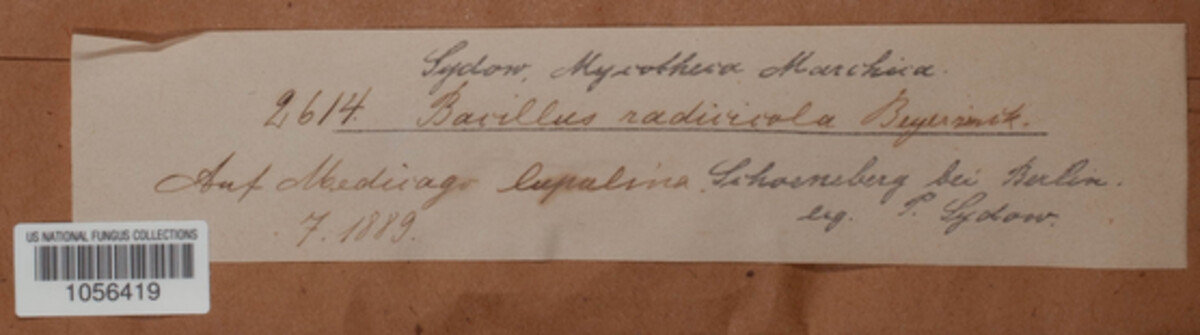 Sydow, Mycotheca Marchica.
2614. Bacillus radicicola Beyerinck.
Auf Medicago lupulina. Schoeneberg bei Berlin.
7. 1889.
leg. P. Sydow.
US NATIONAL FUNGUS COLLECTIONS
1056419